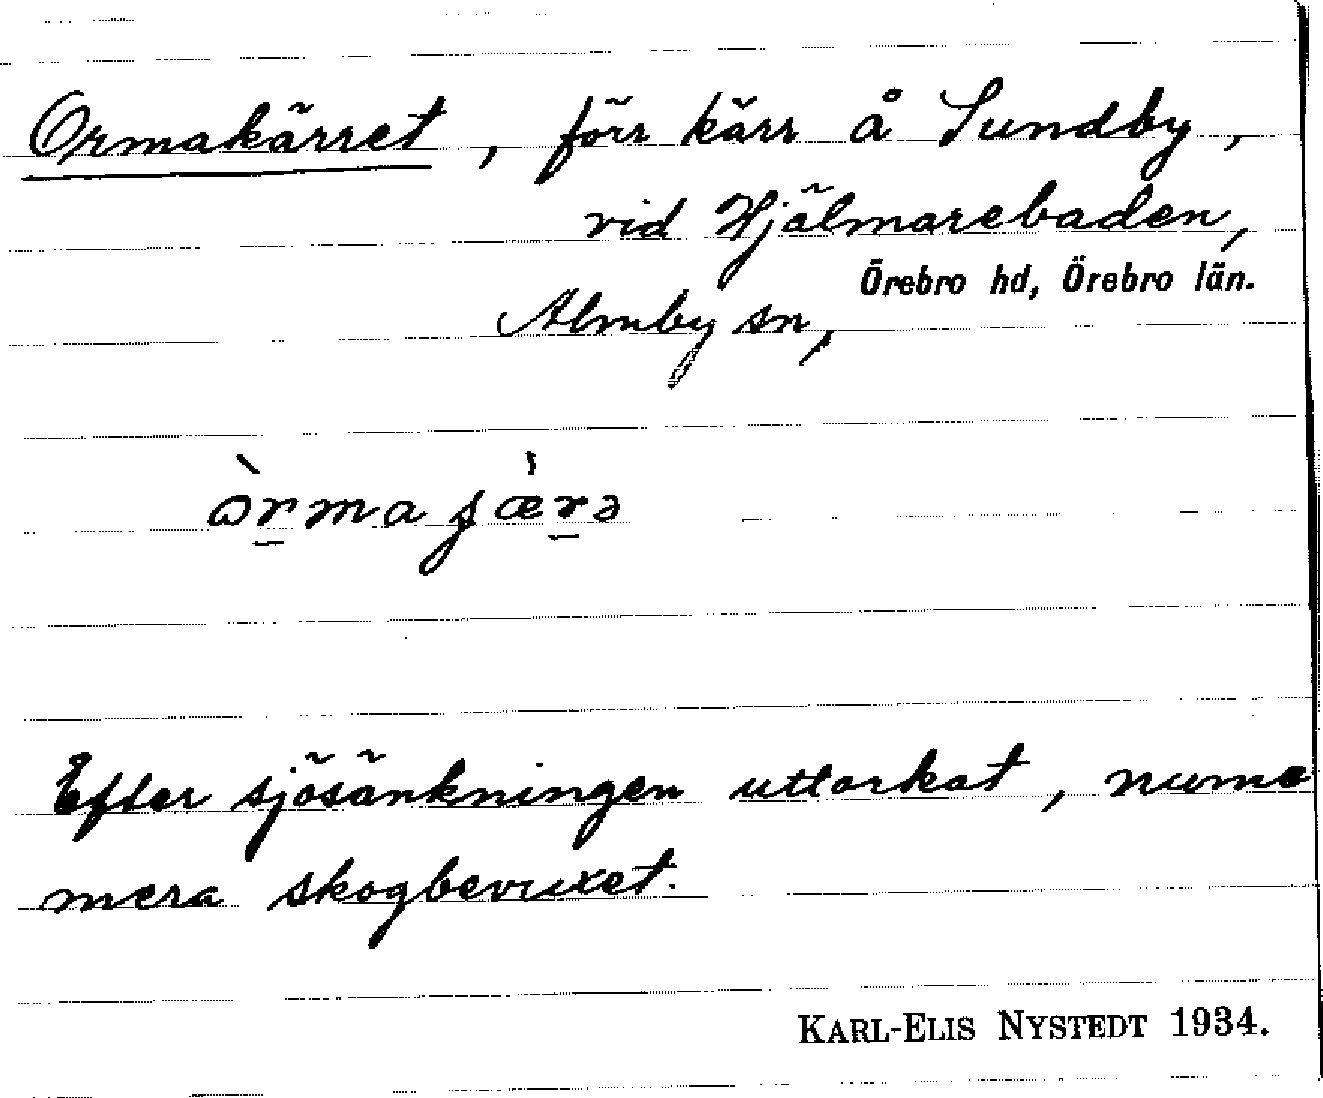 Ormakärret, förr kärr å Sundby,
vid Hjälmarebaden,
Örebro hd, Örebro län.
Almby sn,
Efter sjösänkningen uttorkat, nume
mera skogbevuxet.
KARL-ELIS NYSTEDT 1934.